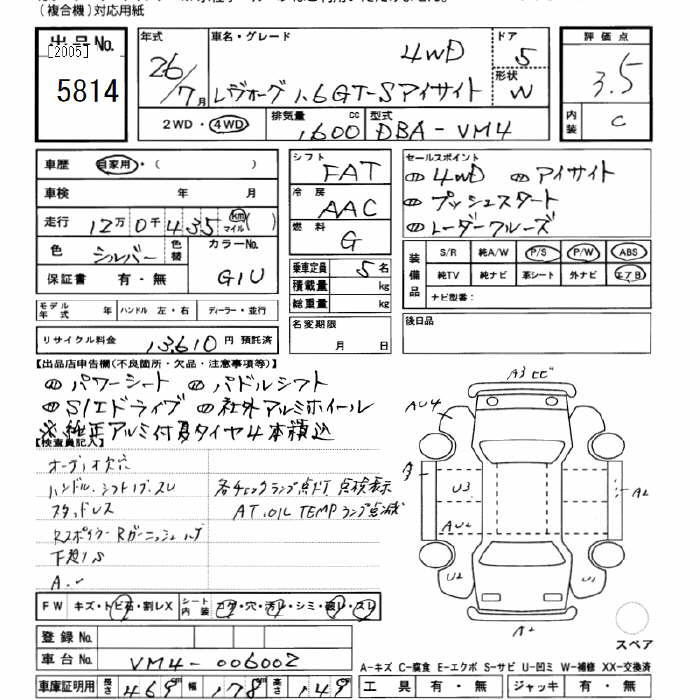 (複合機)対応用紙
出品No.
[2005]
5814
年式
26/7月
車名・グレード
4WD
レヴォーグ 1.6GT-Sアイサイト
ドア
5
形状
W
2WD・4WD
排気量
1,600 cc
型式
DBA-VM4
評価点
3.5
内装
C
車歴 自家用・( )
車検 年 月
走行 12万0千435 km マイル ( )
色 シルバー 色替 カラーNo. G1U
保証書 有・無
モデル年式 年 ハンドル 左・右 ディーラー・並行
リサイクル料金 13,610 円 預託済
シフト FAT
冷房 AAC
燃料 G
乗車定員 5 名
積載量 kg
総重量 kg
名変期限
月 日
セールスポイント
4WD アイサイト
プッシュスタート
レーダークルーズ
装備品
S/R 純A/W P/S P/W ABS
純TV 純ナビ 革シート 外ナビ エアB
ナビ型番:
後日品
【出品店申告欄(不良箇所・欠品・注意事項等)】
パワーシート パドルシフト
SIエドライブ 社外アルミホイール
※純正アルミ付夏タイヤ4本積込
【検査員記入】
オーディオ欠品
ハンドル、シフトノブ、スレ
各チェックランプ点灯 点検表示
スタッドレス
AT OIL TEMPランプ点滅
Rスポイラー Rガーニッシュ
FW キズ・トビ石・割レX シート内装 コゲ・穴・汚レ・シミ・破レ・スレ
登録No.
車台No. VM4-006002
車庫証明用 長さ 469 幅 178 高さ 149
A3
AU4
U3
AU2
U2
U1
A2
A2
スペア
A-キズ C-腐食 E-エクボ S-サビ U-凹ミ W-補修 XX-交換済
工具 有・無 ジャッキ 有・無